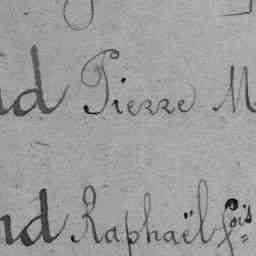 nd Pierre M
nd Raphaël fois